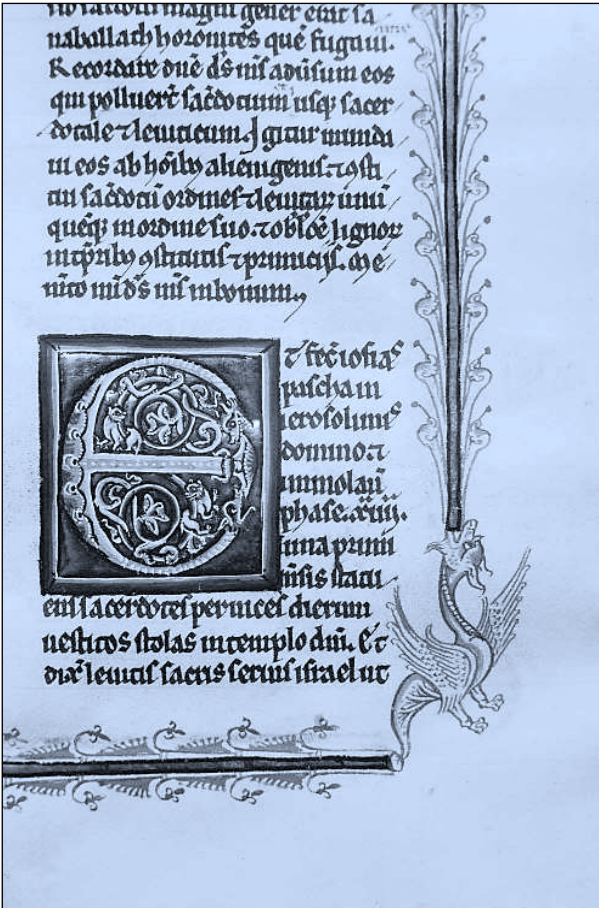 magni gener erat sa
naballath horonites quē fugaui.
Recordare dn̄e ds̄ ns̄ aduisum eos
qui polluerr̄t sac̄docium usq; sacer
dotale ⁊ leuiticum. Igitur munda
ui eos ab hōib; alienigenis. ⁊ ꝯsti
tui sac̄dotū ordines ⁊ leuitar̄ unū
quēq; in ordine suo. ⁊ lignor̄
in tp̄rib; ꝯstitutis ⁊ primiciis. Me
mi d̄s ns̄ in bonum.
Et fec̄ iosias
pascha in
ierosolimis
domino. ⁊
immolauı̄
phase. xiiii.
luna primi
m̄sis statu
ens sacerdotes per uices dierum
uestitos stolas in templo dn̄i. Et
dix̄ leuitis sacris seruis israel ut